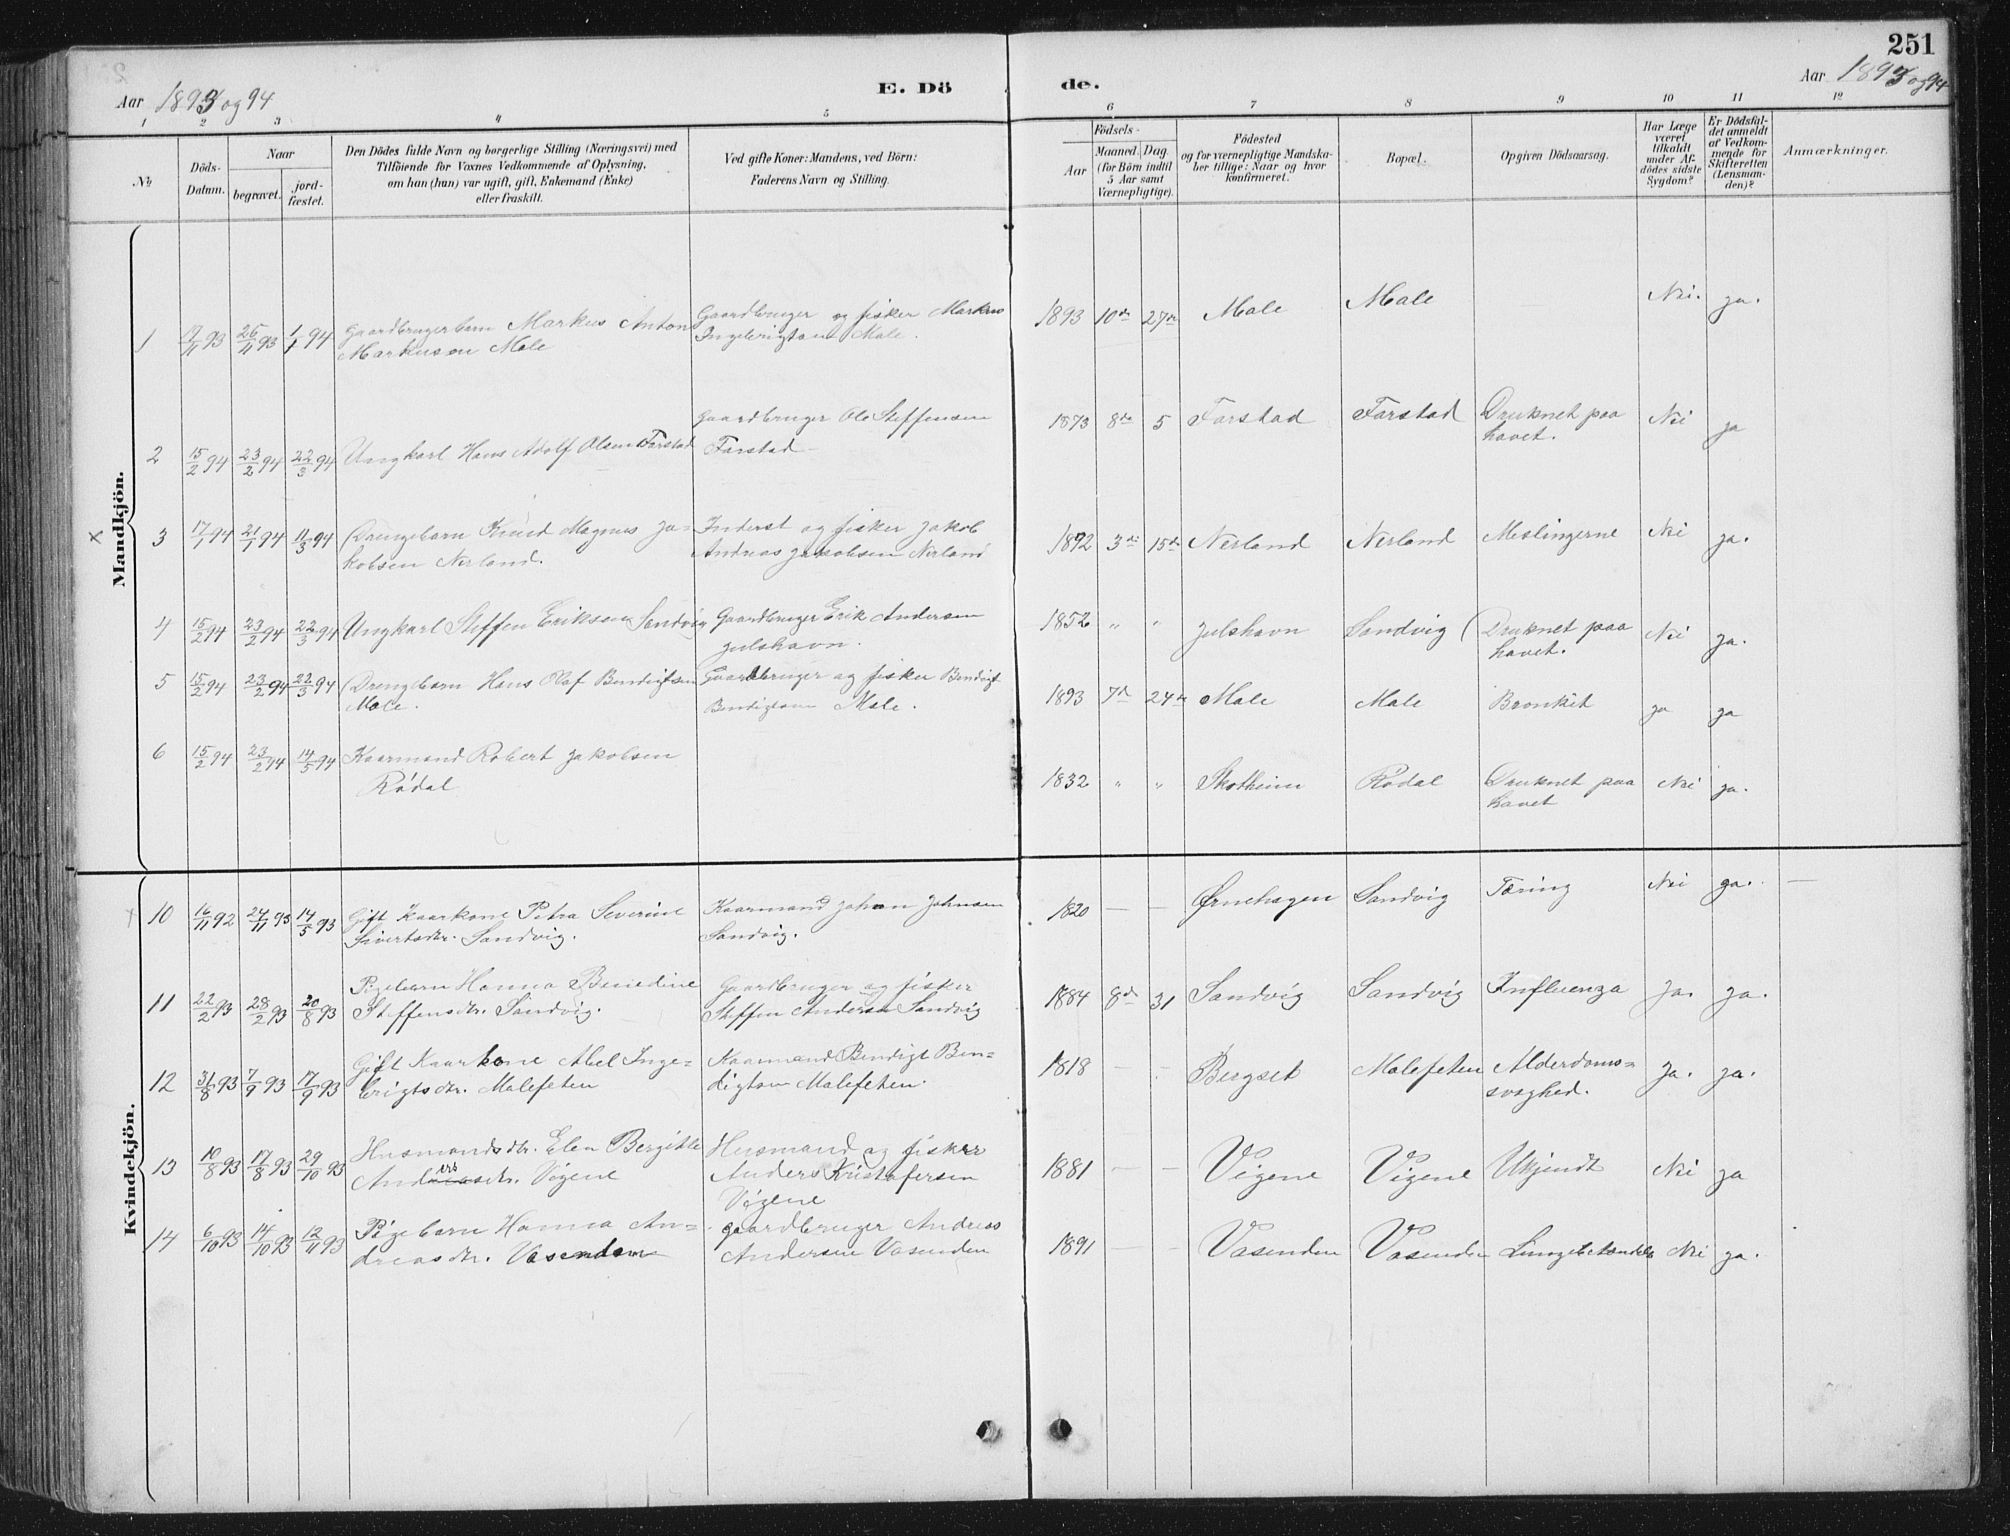 251
Aar 1893 og 94
E. Dö
de.
Aar 1893 og 94
1 2 3 4 5 6 7 8 9 10 11 12
№
Döds-Datum.
Naar
begravet.
jord-fæstet.
Den Dödes fulde Navn og borgerlige Stilling (Næringsvei) med
Tilföiende for Voxnes Vedkommende af Oplysning,
om han (hun) var ugift, gift, Enkemand (Enke)
eller fraskilt.
Ved gifte Koner: Mandens, ved Börn:
Faderens Navn og Stilling.
Födsels-
Aar
Maaned. Dag
(for Börn indtil
5 Aar samt
Værnepligtige).
Födested
og for værnepligtige Mandska-
ber tillige: Naar og hvor
konfirmeret.
Bopæl.
Opgiven Dödsaarsag.
Har Læge
været
tilkaldt
under Af-
dödes sidste
Sygdom?
Er Dödsfal-
det anmeldt
af Vedkom-
mende for
Skifteretten
(Lensman-
den)?
Anmærkninger.
Mandkjön.
1 7/11 93 26/11 93 1/1 94 Gaardbrugerbarn Markus Anton
Markusen Male
Gaardbruger og fisker Markus
Ingebrigtsen Male.
1893 10de 27de Male Male Nei. ja.
2 15/2 94 23/2 94 22/3 94 Ungkarl Hans Adolf Olsen Farstad
Gaardbruger Ole Steffensen
Farstad
1873 8de 5 Farstad Farstad Druknet paa
havet. Nei ja
3 17/1 94 21/1 94 11/3 94 Drengebarn Knud Magnus Ja-
kobsen Nerland.
Inderst og fisker Jakob
Andreas Jakobsen Nerland
1892 3de 15de Nerland Nerland Meslingerne Nei ja.
4 15/2 94 23/2 94 22/3 94 Ungkarl Steffen Eriksen Sandvig
Gaardbruger Erik Andersen
Julshavn.
1852 " " Julshavn Sandvig Druknet paa
havet. Nei ja.
5 15/2 94 23/2 94 22/3 94 Drengebarn Hans Olaf Bendigtsen
Male.
Gaardbruger og fisker Bendigt
Bendigtsen Male.
1893 7de 24de Male Male Bronkit ja ja
6 15/2 94 23/2 94 14/5 94 Kaarmand Robert Jakobsen
Rødal
1832 " " Skotheim Rødal Druknet paa
havet Nei ja.
Kvindekjön.
10 16/11 92 24/11 93 14/5 93 Gift Kaarkone Petra Severine
Sivertsdtr. Sandvig.
Kaarmand Johan Johnsen
Sandvig.
1820 — — Ørnehagen Sandvig Tæring Nei ja. —
11 22/2 93 28/2 93 20/8 93 Pigebarn Hanna Benedine
Steffensdtr. Sandvig.
Gaardbruger og fisker
Steffen Andersen Sandvig
1884 8de 31 Sandvig Sandvig Influenza Ja. ja.
12 31/8 93 7/9 93 17/9 93 Gift Kaarkone Abel Inge-
brigtsdtr. Malefeten
Kaarmand Bendigt Ben-
digtsen Malefeten.
1818 — — Bergset Malefeten Alderdoms-
svaghed. Ja. ja.
13 10/8 93 17/8 93 29/10 93 Husmandsdtr. Elen Bergitte
Andersdtr. Vigene
Husmand og fisker
Anders Kristofersen
Vigene
1881 — — Vigene Vigene Ukjendt Nei ja
14 6/10 93 14/10 93 12/11 93 Pigebarn Hanna An-
dreasdtr. Vasenden
gaardbruger Andreas
Andersen Vasenden
1891 — Vasenden Vasenden Lungebetændelse Nei ja.